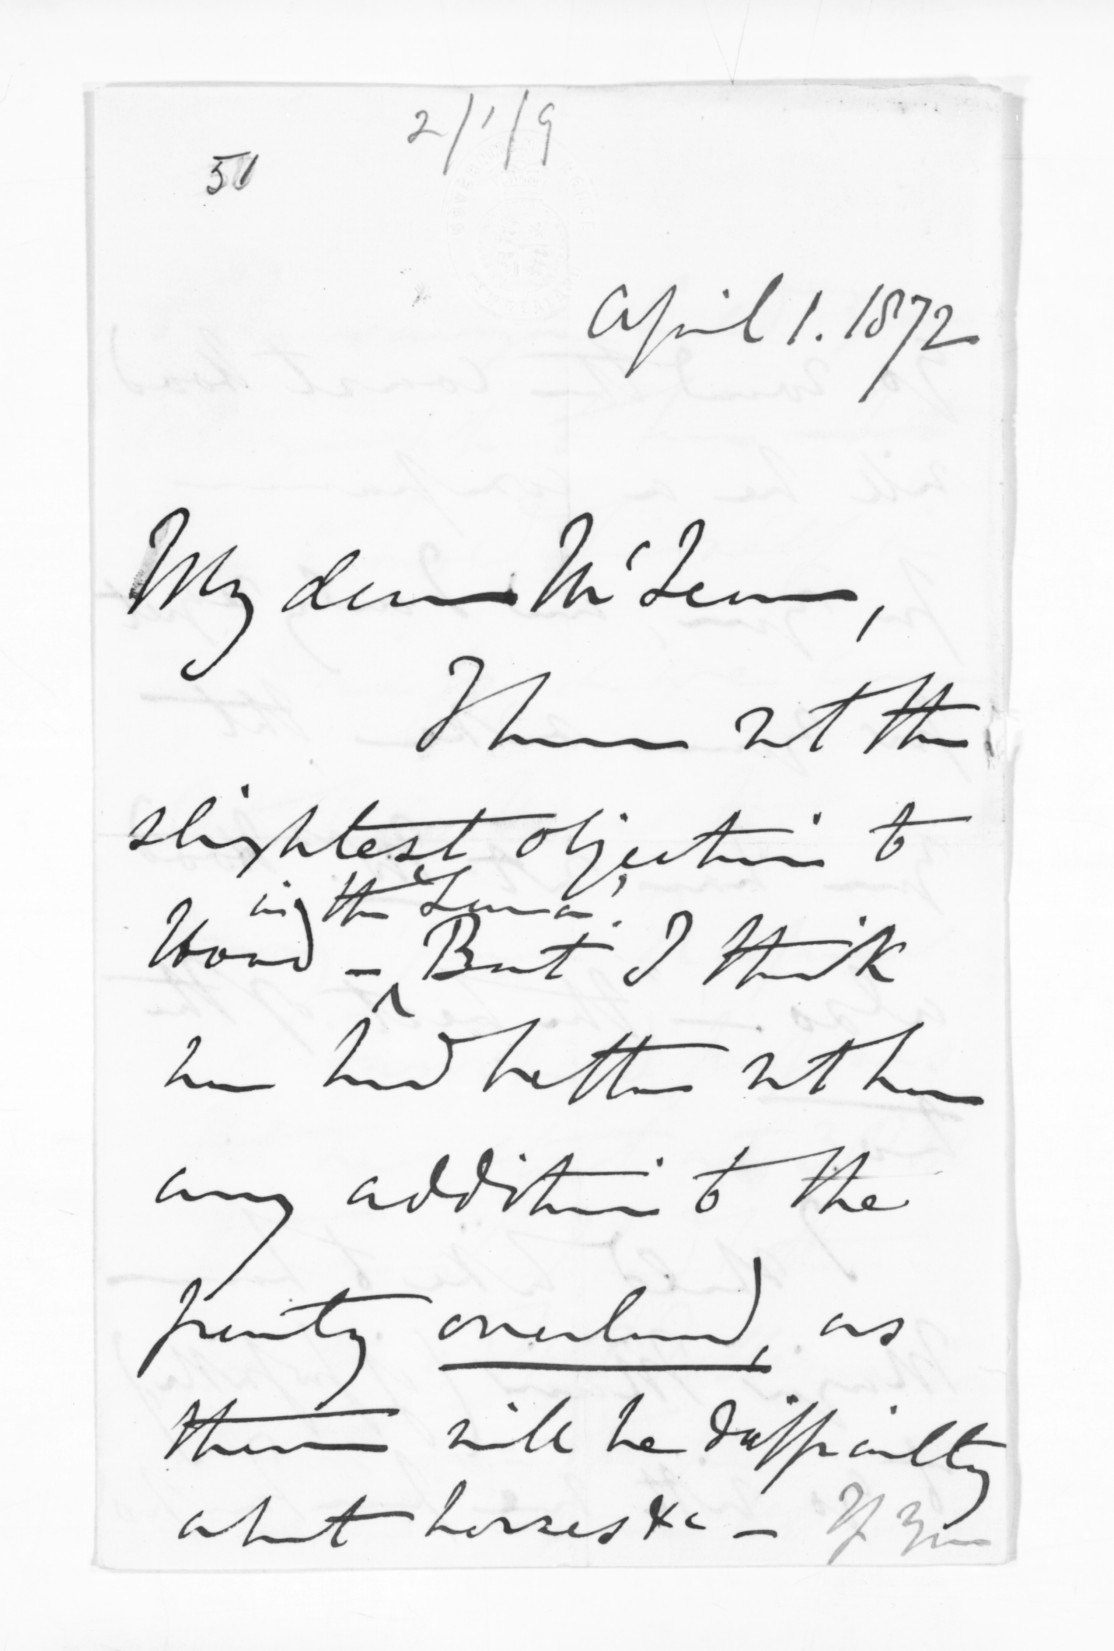 2/1/9
51
April 1. 1872
My dear McLean,
I have not the
slightest objection to
in the "Luna".
Wood - But I think
we had better not have
any addition to the
party overland, as
there will be difficulty
about horses &c - If you